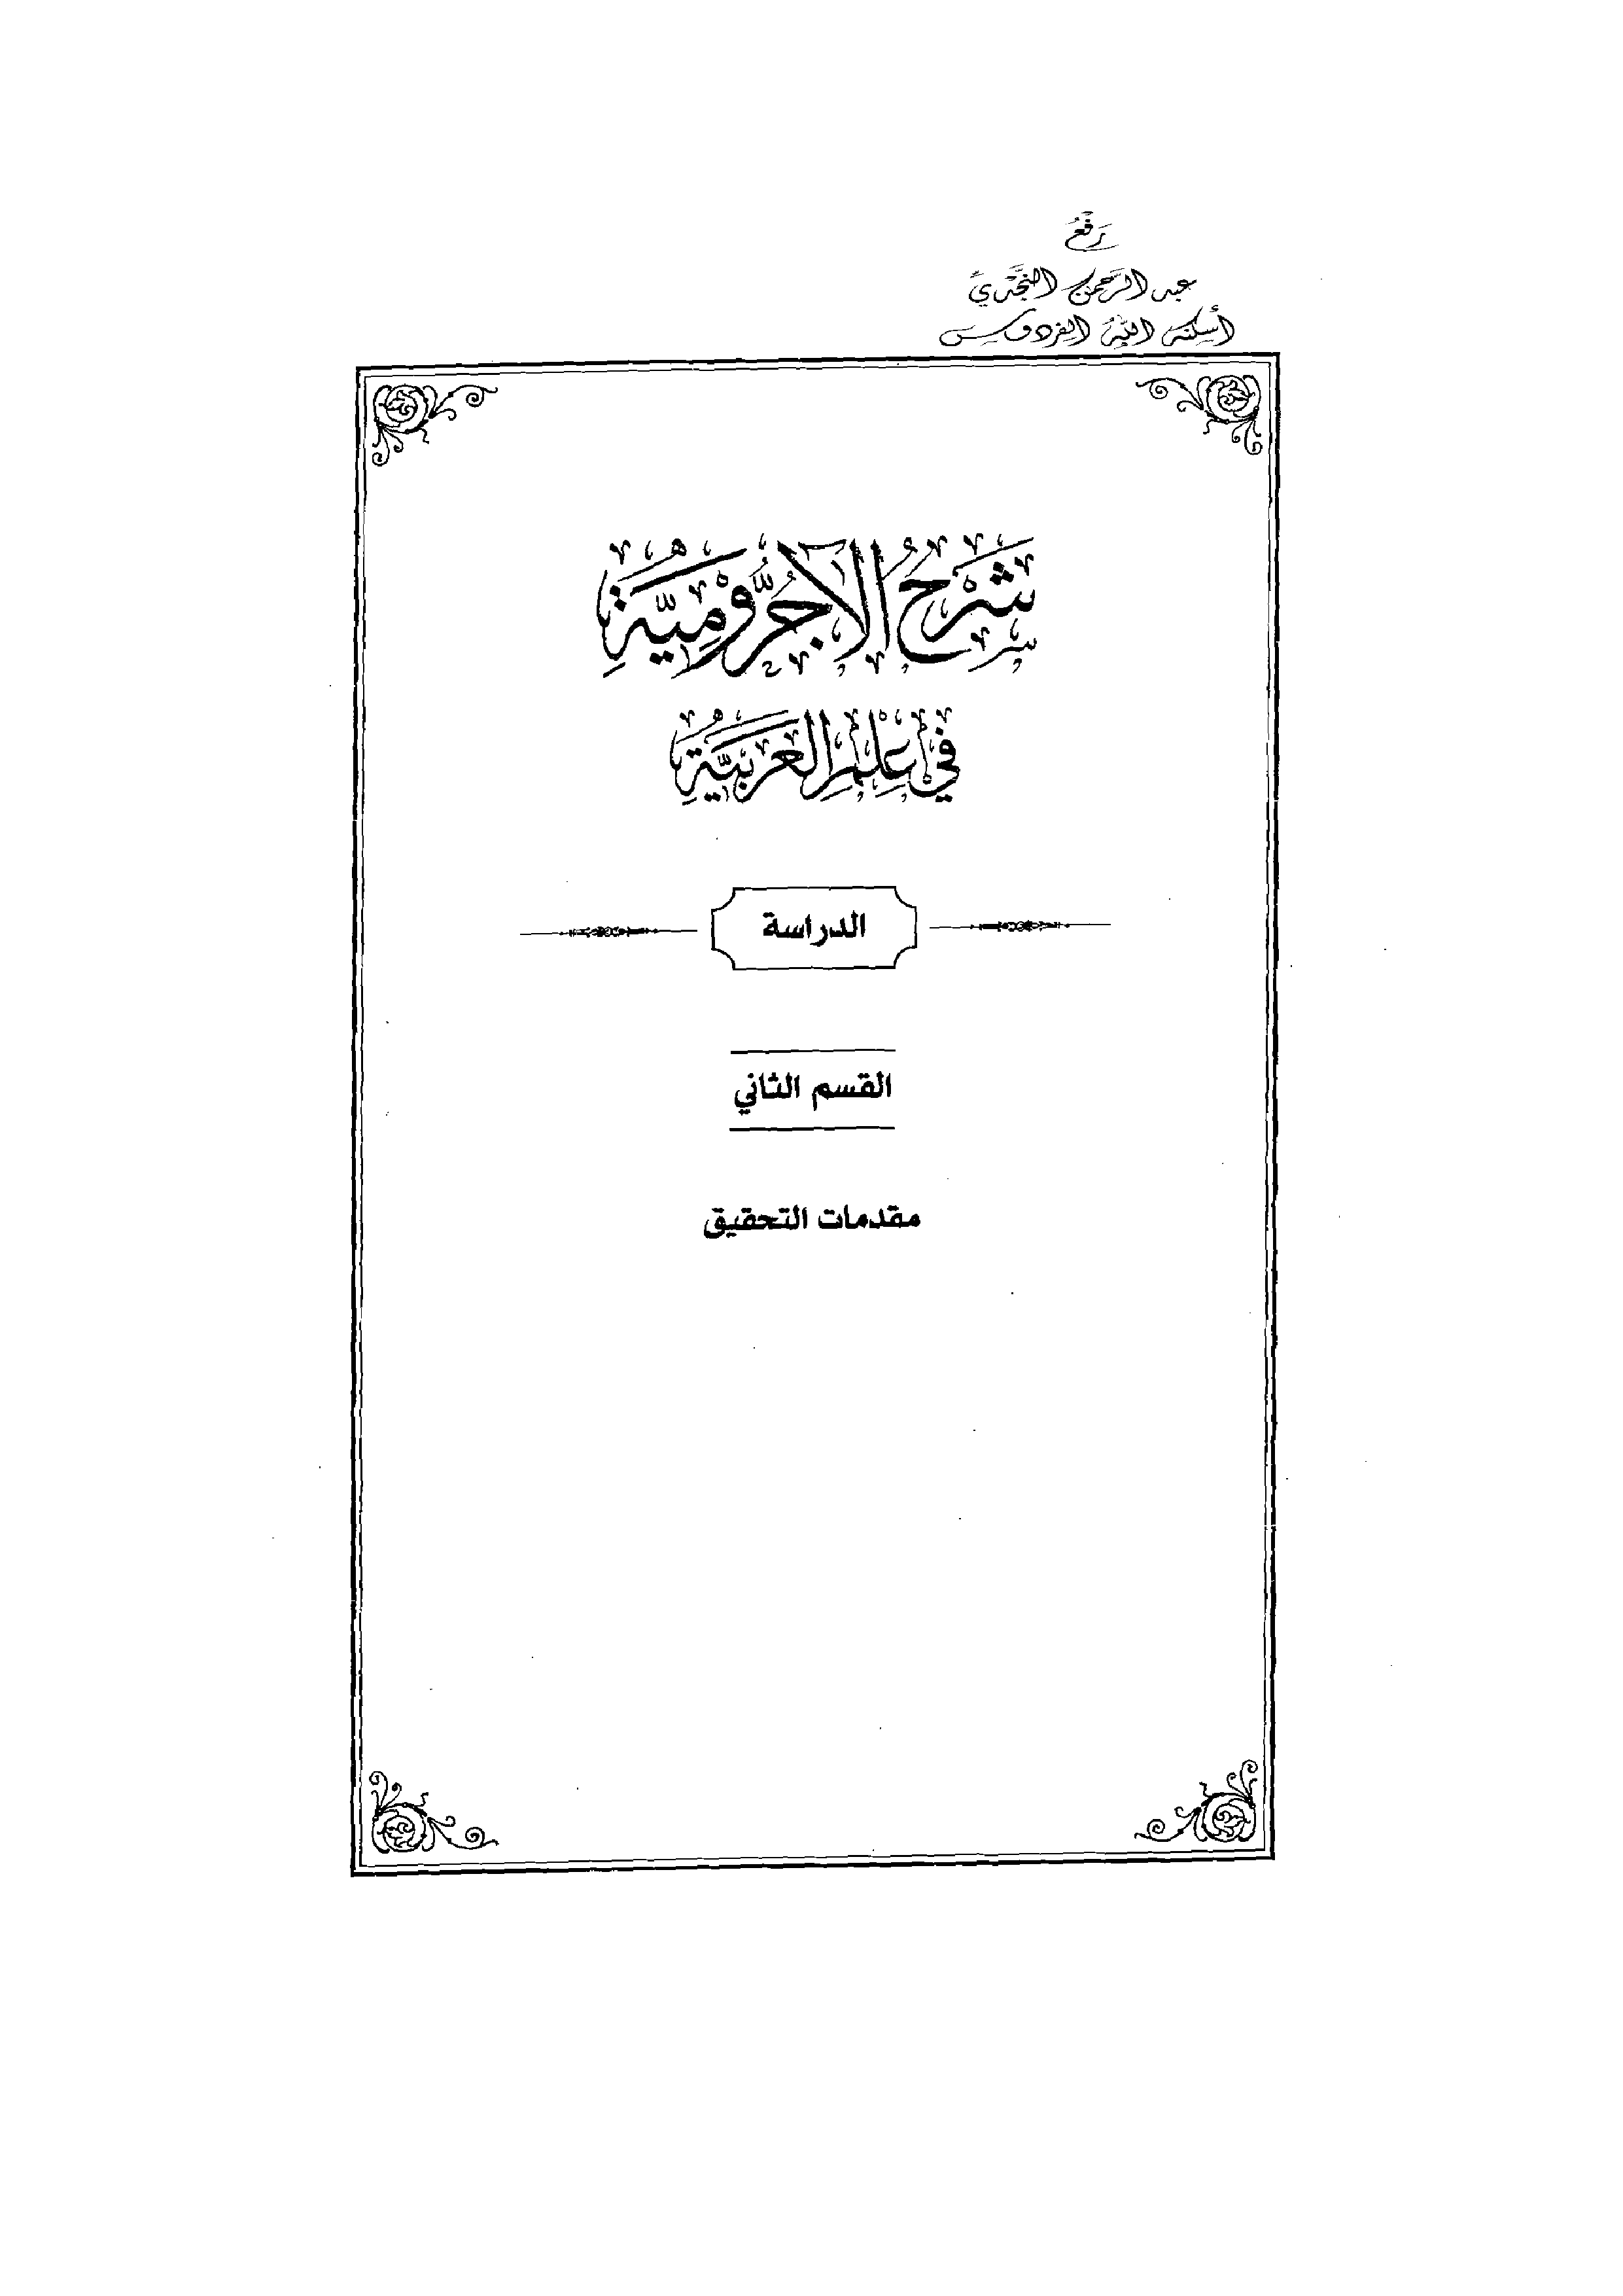 رَفْعُ
عبد الرحمن النجدي
أسكنه الله الفردوس
شَرْحُ الآجُرُّومِيَّةِ
فِي عِلْمِ العَرَبِيَّةِ
الدراسة
القسم الثاني
مقدمات التحقيق